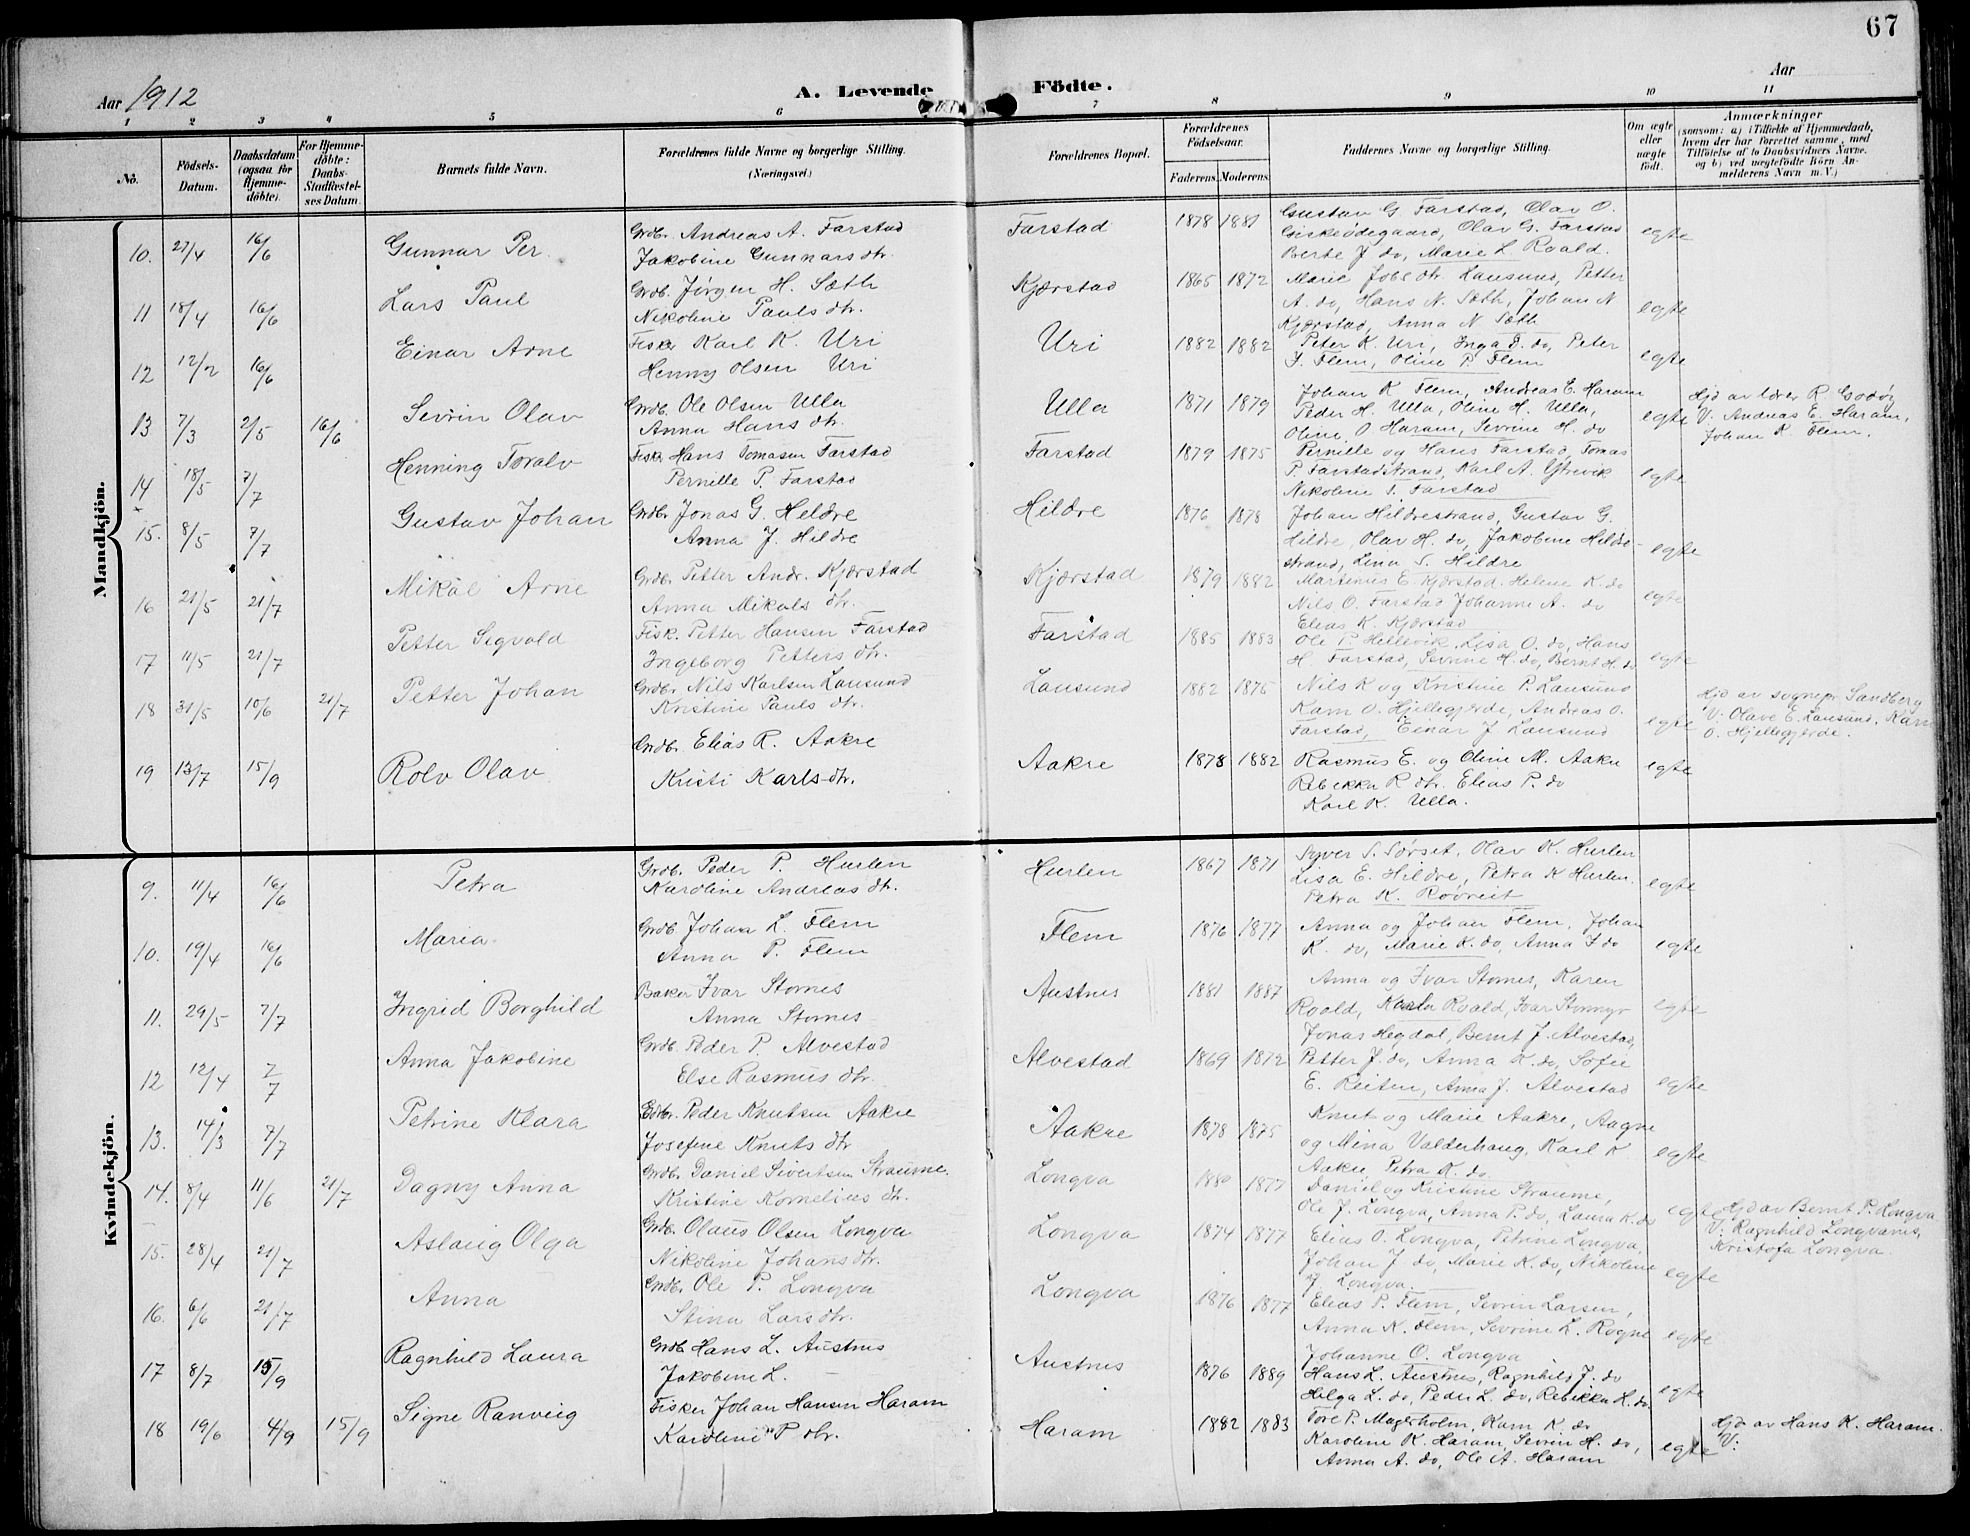 67
Aar 1912
A. Levende Födte.
Aar
1 2 3 4 5 6 7 8 9 10 11
No.
Födsels-Datum.
Daabsdatum (ogsaa for Hjemme-döbte).
For Hjemme-döbte: Daabs-Stadfæstel-ses Datum.
Barnets fulde Navn.
Forældrenes fulde Navne og borgerlige Stilling.
(Næringsvei.)
Forældrenes Bopæl.
Forældrenes Födselsaar.
Faderens. Moderens.
Faddernes Navne og borgerlige Stilling.
Om ægte eller uægte födt.
Anmærkninger
(saasom: a) i Tilfælde af Hjemmedaab, hvem der har forrettet samme, med Tilföielse af to Daabsvidners Navne. og b) ved uægtefödte Börn An-melderens Navn m. V.)
Mandkjön.
10. 27/4 16/6 Gunnar Per. Grdbr. Andreas A. Farstad
Jakobine Gunnars dtr. Farstad 1878 1881 Gustav G. Farstad, Olav O.
Giskeødegaard, Olav G. Farstad
Berte J do, Marie L Roald. egte
11 18/4 16/6 Lars Paul Grdb. Jørgen H. Sæth
Nikoline Pauls dtr. Kjærstad 1865 1872 Marie Jobs dtr. Lausund, Petter
A. do, Hans N. Sæth, Johan N
Kjærstad, Anna N Sæth egte
12 12/2 16/6 Einar Arne Fisker Karl K. Uri
Henny Olsen Uri Uri 1882 1882 Peter K. Uri, Inga D. do, Peter
J. Flem, Oline P. Flem egte
13 7/3 2/5 16/6 Sevrin Olav Grdb. Ole Olsen Ulla
Anna Hans dtr. Ulla 1871 1879 Johan K Flem, Andreas E. Haram
Peder H. Ulla, Oline H. Ulla,
Oline O Haram, Sevrine H. do egte Hjd av lærer R Godøy
V. Andreas E. Haram,
Johan K. Flem.
14 18/5 7/7 Henning Toralv Fisk. Hans Tomassen Farstad
Pernille P. Farstad Farstad 1879 1875 Pernille og Hans Farstad, Tomas
P. Farstadstrand, Karl A. Ytrevik
Nikoline T. Farstad egte
15. 8/5 7/7 Gustav Johan Grdbr. Jonas G. Hildre
Anna J. Hildre Hildre 1876 1878 Johan Hildrestrand, Gustav G.
Hildre, Olav H. do, Jakobine Hildre-
strand, Lina S. Hildre egte
16 21/5 21/7 Mikal Arne Grdb. Petter Andr. Kjærstad
Anna Mikals dtr. Kjærstad 1879 1882 Martinus E. Kjærstad. Helene K. do
Nils O. Farstad Johanne A. do
Elias K. Kjærstad egte
17 11/5 21/7 Petter Sigvald Fisk. Petter Hansen Farstad
Ingeborg Petters dtr. Farstad 1885 1883 Ole P. Hellevik, Lisa O. do, Hans
H. Farstad, Sevrine H. do, Bernt H. do egte
18 31/5 10/6 21/7 Petter Johan Grdbr. Nils Karlsen Lausund
Kristine Pauls dtr. Lausund 1882 1875 Nils K og Kristine P. Lausund
Karn O. Hjellegjerde, Andreas O.
Farstad, Einar J Lausund egte Hjd av sognepr Sandberg
V: Olave E. Lausund, Karn
O. Hjellegjerde.
19 13/7 15/9 Rolv Olav Grdb. Elias R. Aakre
Kristi Karls-dtr. Aakre 1878 1882 Rasmus E. og Oline M. Aakre
Rebekka R dtr. Elias P. do
Karl K. Ulla. egte
Kvindekjön.
9. 11/4 16/6 Petra Grdb. Peder P. Hurlen
Karoline Andreas dtr. Hurlen 1867 1871 Syver S. Sørset, Olav K. Hurlen
Lisa E. Hildre, Petra K Hurlen.
Petra K. Røvreit egte
10. 19/4 16/6 Maria Grdb. Johan L. Flem
Anna P. Flem Flem 1876 1877 Anna og Johan Flem, Johan
K. do, Marie K. do, Anna J do egte
11. 29/5 7/7 Ingrid Borghild Baker Ivar Stornes
Anna Stornes Austnes 1881 1887 Anna og Ivar Stornes, Karen
Roald, Roald, Ivar egte
12 12/4 7/7 Anna Jakobine Grdb. Peder P. Alvestad
Else Rasmus dtr. Alvestad 1869 1872 Jonas Hegdal, Bernt J. Alvestad,
Petter J. do, Anna K. do, Sofie
E. Reiten, Anna J. Alvestad egte
13. 14/3 7/7 Petrine Klara Grdbr. Peder Knutsen Aakre
Josefine Knuts dtr Aakre 1878 1875 Knut og Marie Aakre, Aagne
og Mina Valderhaug, Karl K
Aakre, Petra K. do egte
14. 8/4 11/6 21/7 Dagny Anna Grdbr. Daniel Sivertsen Straume.
Kristine Kornelius dtr. Longva 1880 1877 Daniel og Kristine Straume,
Ole J. Longva, Anna P. do, Laura K. do egte Hjd av Bernt P. Longva
V: Ragnhild Longvanes,
Kristofa Longva.
15. 28/4 21/7 Aslaug Olga Grdb. Olaus Olsen Longva
Nikoline Johans dtr. Longva 1874 1877 Elias O. Longva, Petrine Longva,
Johan J do, Marie K. do, Nikoline
J Longva. egte
16. 6/6 21/7 Anna Grdb. Ole P. Longva
Stina Lars dtr. Longva 1876 1877 Elias P. Flem, Sevrin Larsen,
Anna K. Flem, Sevrine L. Rogne
Johanne O. Longva egte
17 8/7 15/9 Ragnhild Laura Grdb. Hans L. Austnes
Jakobine L. Austnes 1876 1889 Hans L. Austnes, Ragnhild J. do
Helga L. do, Peder L. do, Rebikka H. do egte
18 19/6 4/9 15/9 Signe Ranveig Fisker Johan Hansen Haram
Karoline P dtr. Haram 1882 1883 Tore P. Magerholm, Karn K. do
Karoline K. Haram, Sevrin H. do,
Anna A. do, Ole A. Haram egte Hjd av Hans K. Haram.
V: